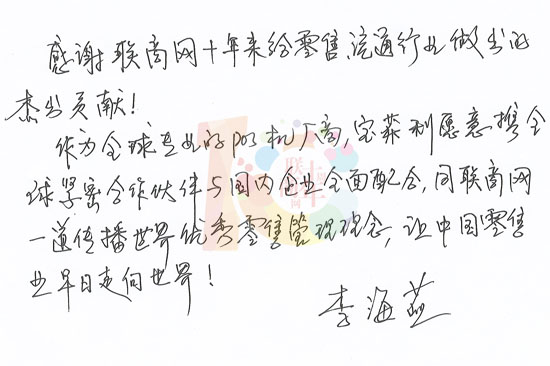 感谢联商网十年来给零售流通行业做出的
杰出贡献!
作为全球专业的POS机厂商,宝获利愿意携全
球紧密合作伙伴与国内企业全面配合,同联商网
一道传播世界优秀零售管理理念,让中国零售
业早日走向世界!
李海